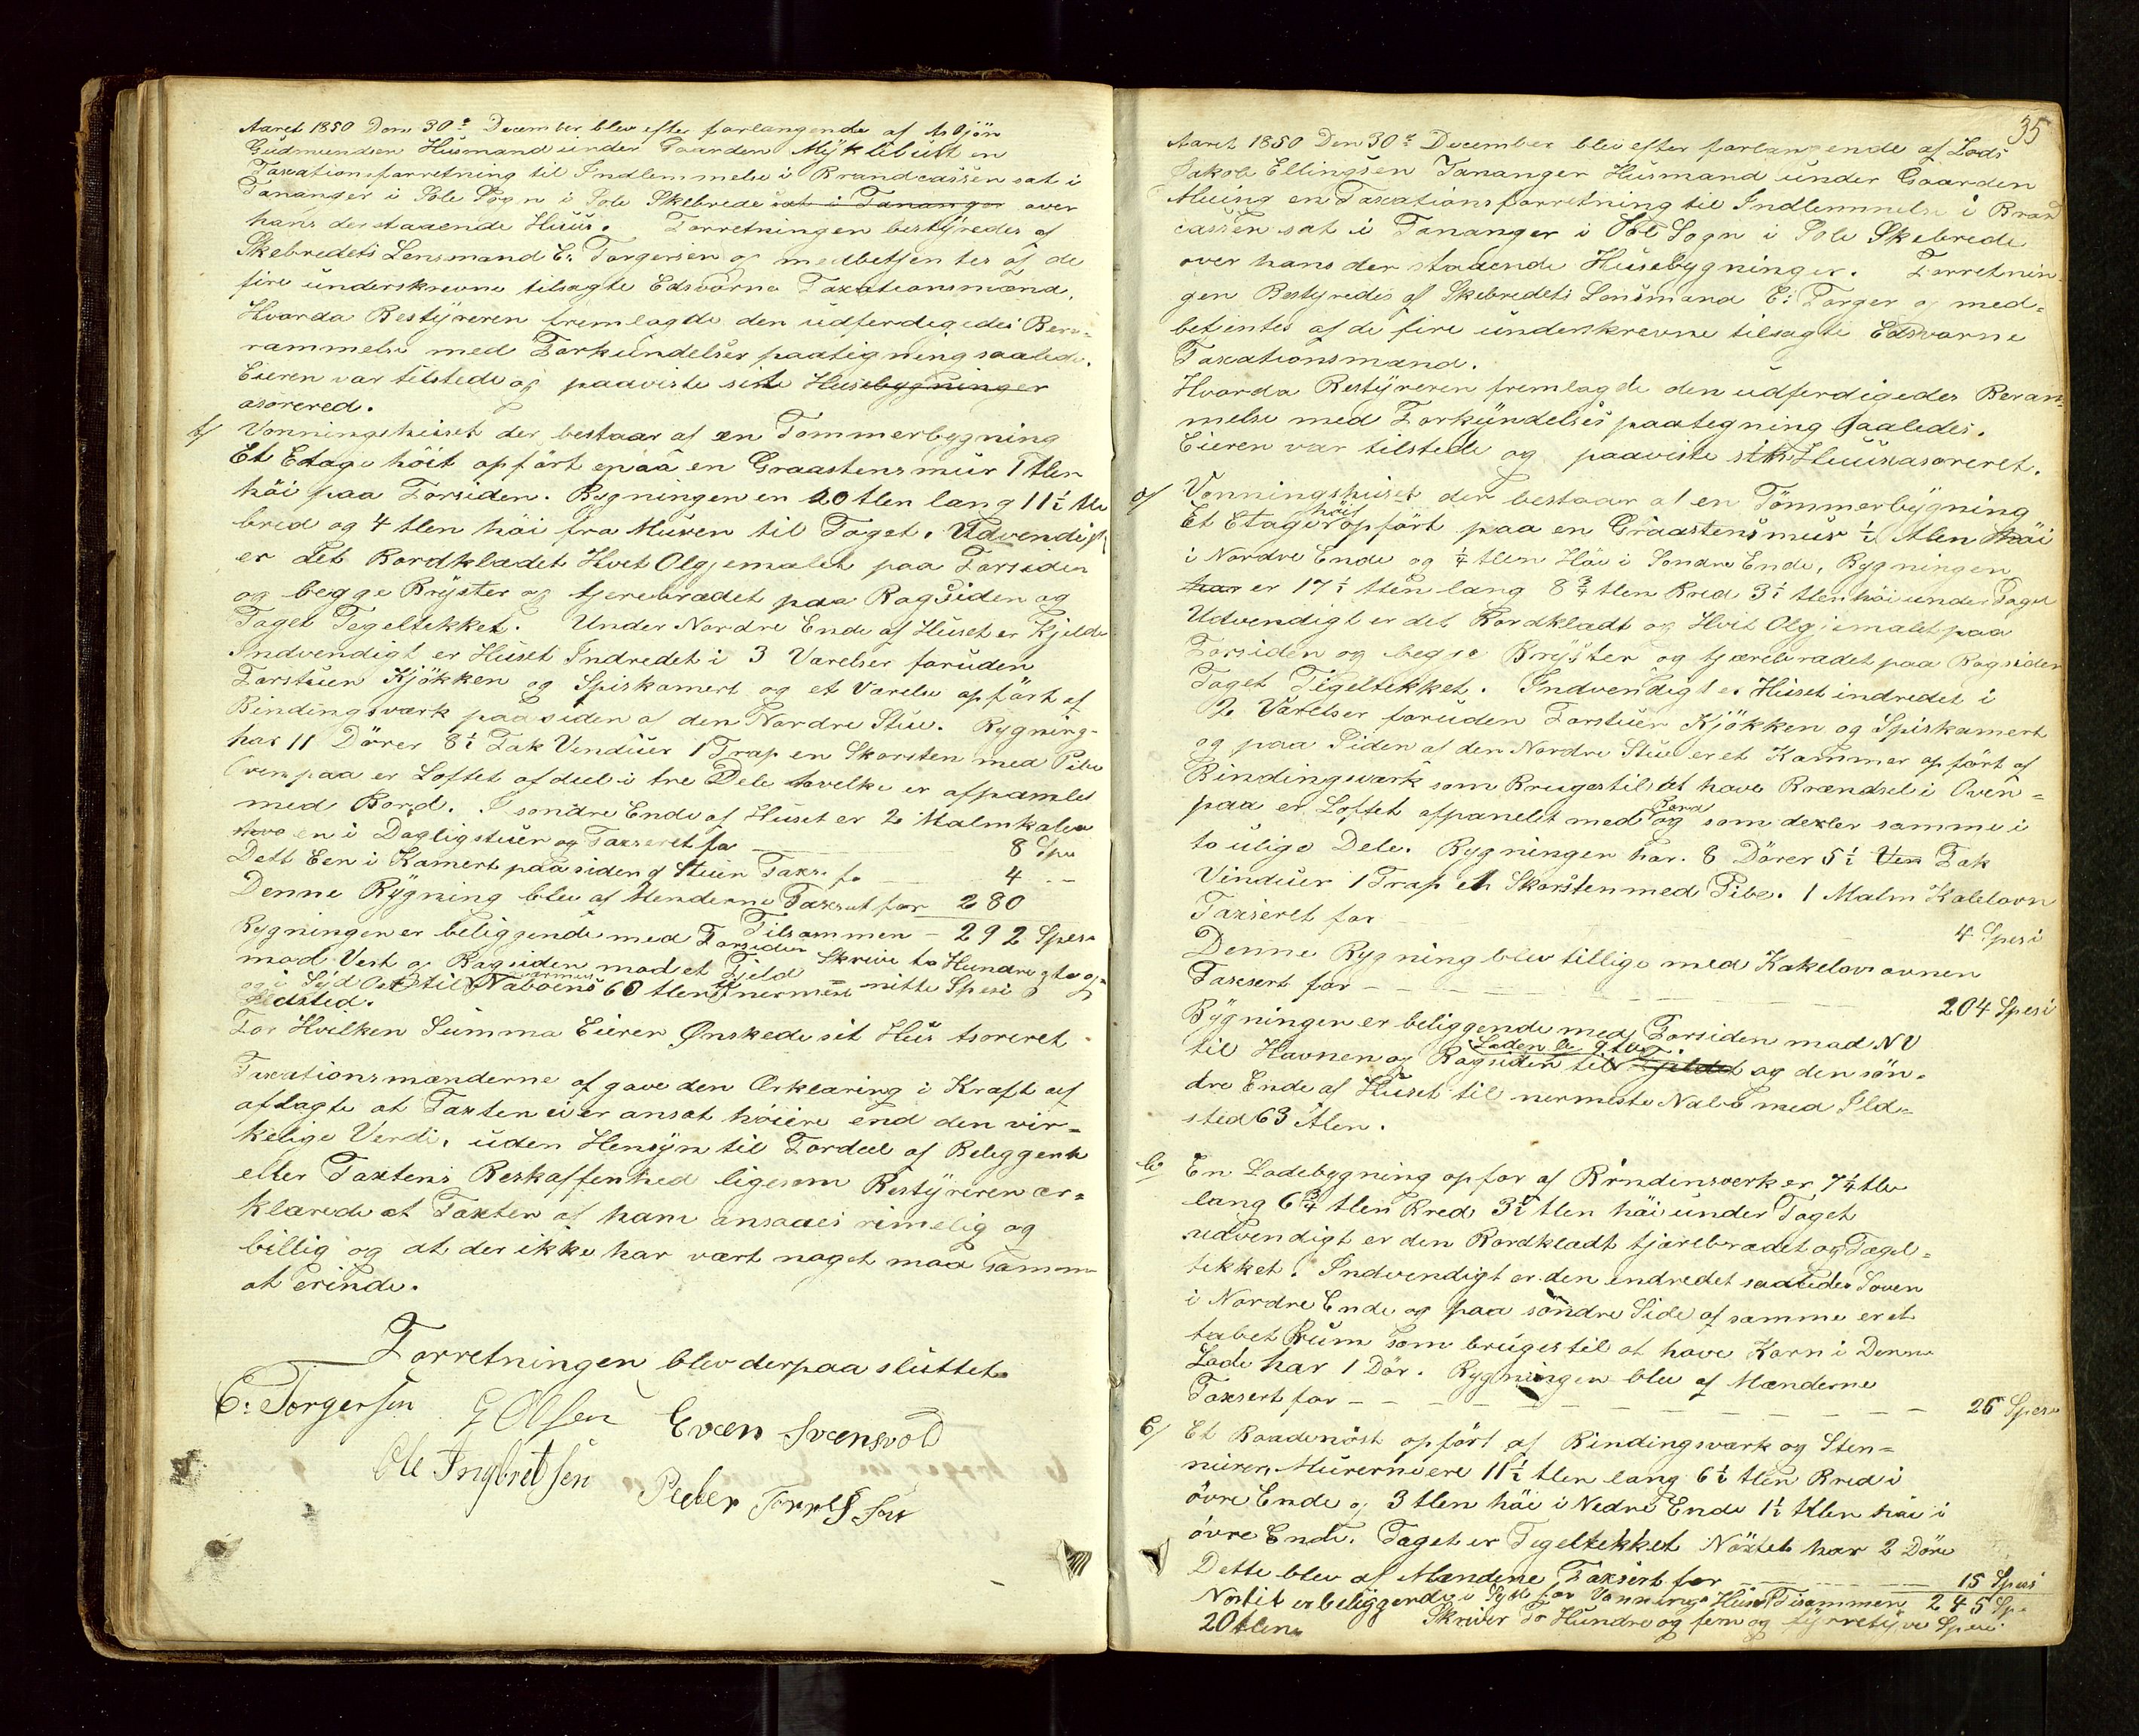 Aaret 1850 Den 30te December blev efter forlangende af Asbjön
Gudmundsen Husmand under Gaarden Myklebust en
Taxationsforretning til Indlemmelse i Brandcassen sat i
Tananger i Sole Sogn i Sole Skebrede sat i Tananger over
hans derstaaende Huus. Forretningen bestyredes af
Skebredets Lensmand E. Torgersen og medbetjentes af de
fire underskrevne tilsagte Edsvorne Taxationsmænd.
Hvorda Bestyreren fremlagde den udferdigedes Be-
rammelse med Forkundelses paategning saaledes.
Eieren var tilstede og paaviste site Husebygninger
asorered.
A/ Vonningshuset der bestaar af en Tommerbygning
Et Etage höit opfört paa en Graastensmur 1 Alen
höi paa Forsiden. Bygningen en 20 Alen lang 11½ Ale
bred og 4 Alen höi fra Muren til Taget. Udvendigt
er det Bordkladet Hvet Olgjemalet paa Forsiden
og begge Bryster og tjerebradet paa Bagsiden og
Taget Tegeltekket. Under Nordre Ende af Huset er Kjelder
Indvendigt er Huset Indredet i 3 Varelser foruden
Forstuen Kjökken og Spiskamert og et Varelse opfört af
Bindingsværk paa siden af den Nordre Stue. Bygning-
har 11 Dörer 8½ Fak Venduer 1 Trap en Skorsten med Pibe
Ovenpaa er Loftet afdeel i tre Dele hvelke er afpanelet
med Bord. I sondre Ende af Huset er 2 Malmkakelov
en i Dagligstuen og Taxseret for 8 Spe
Dett Een i Kamert paa siden af Stuen Taxs. fo 4 --
Denne Bygning blev af Menderne Taxsert for 280
Tilsammen - 292 Spesi
Bygningen er beliggende med Forsiden Skrive to Hundre og to og
mod Vest og Bagsiden mod et Fjeld nitte Spesi
og i Syd Ost til Naboens 60 Alen nermest
Ildsted.
For Hvilken Summa Eieren Ønskede sit Hus asoreret
Taxationsmænderne af gave den Erklaring i Kraft af
aflagte at Taxten ei er ansat höiere end den vir-
kelige Verdi, uden Hensyn til Fordeel af Beleggenh
eller Taxtens Beskaffenhed ligesom Bestyreren er-
klarede at Taxten af ham ansaaes rimelig og
billig og at der ikke har vært noget maa samme
at erinde.
Forretningen blev derpaa sluttet
E. Torgersen G Olsen Even Svensvold
Ole Ingbretsen Peder
35
Aaret 1850 Den 30te December blev efter forlangende af Lods
Jakob Ellingsen Tananger Husmand under Gaarden
Meling en Taxationsforretning til Indlemmelse i Brand
cassen sat i Tananger i Sole Sogn i Sole Skebrede
over hans der staaende Husebygninger. Forretnin
gen Bestyredes af Skebredets Lensmand E. Torger og med-
betientes af de fire underskrevne tilsagte Edsvorne
Taxationsmænd.
Hvorda Bestyreren fremlagde den udferdigedes Beram
melse med Forkyndelses paategning saaledes.
Eieren var tilstede og paaviste sit Huus asoreret.
a/ Vonningshuset der bestaar af en Tömmerbygning
Et Etage höit opfört paa en Graastensmur ½ Alen höi
i Nordre Ende og ¼ Alen Höi i Sondre Ende, Bygningen
har er 17½ Alen lang 8¾ Alen Bred 3½ Alen höi under Taget
Udvendigt er det Bordkladt og Hvit Olgjemalet paa
Forsiden og begge Bryster og tjærebradet paa Bagsiden
Taget Tigeltekket. Indvendigt er Huset indredet i
2 Varelser foruden Forstuen Kjökken og Spiskamert
og paa Siden af den Nordre Stue er et Kammer opfört af
Bindingsværk som Bruges til at have Brændsel i Oven-
paa er Loftet afpanelet med Bord og som deeler samme i
to ulige Dele. Bygningen har. 8 Dörer 5½ Ven Fak
Vinduer 1 Trap en Skorsten med Pibe. 1 Malm Kakelovn
Taxseret for 4 Spesi
Denne Bygning blev tillige med Kakelovnen
Taxsert for 204 Spesi
Bygningen er beliggende med Forsiden mod NV
til Havnen og Bagsiden til Laden Fjeldet og den sön-
dre Ende af Huset til nermeste Nabo med Ild-
sted 63 Alen.
b En Ladebygning opfor af Bindensverk er 7¼ Ale
lang 6¾ Alen Bred 3½ Alen höi under Taget
udvendigt er den Bordkladt tjarebradet og Tægel-
tekket. Indvendigt er den endredet saaledes Loven
i Nordre Ende og paa söndre Side af samme er et
tabet Rum som bruges til at have Korn i Denne
Lade har 1 Dör. Bygningen blev af Mænderne
Taxsert for 26 Spesi
C/ Et Baadenöst opfört af Bindingsværk og Sten-
murer, Murerne ere 11½ Alen lang 6½ Alen Bred i
övre Ende og 3 Alen höi i Nedre Ende 1½ Alen höi i
övre Ende. Taget er Tegeltekket Nöstet har 2 Döre
Dette blev af Mændene Taxsert for 15 Spesi
Nostet er beliggende i Syd for Vonnings Huset Tisammen 245 Sp.
20 Alen Skriver To Hundre og fem og fyrretyve Spesi